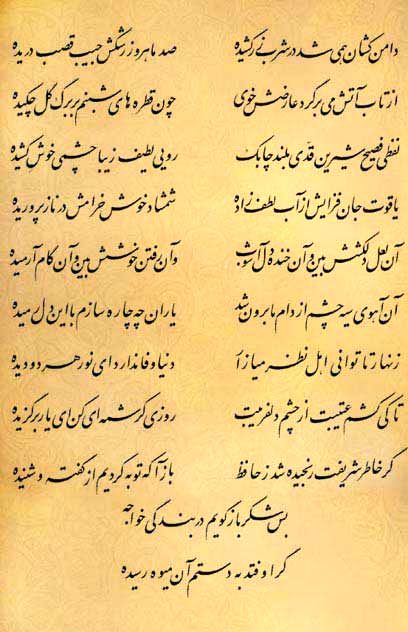 دامن کشان همی شد در شرب زر کشیده صد ماهرو ز رشکش جیب قصب دریده
از تاب آتش می بر گرد عارضش خوی چون قطره های شبنم بر برگ گل چکیده
لفظی فصیح شیرین قدی بلند چابک رویی لطیف زیبا چشمی خوش کشیده
یاقوت جان فزایش از آب لطف زاده شمشاد خوش خرامش در ناز پروریده
آن لعل دلکشش بین وآن خنده دل آشوب وآن رفتن خوشش بین وآن گام آرمیده
آن آهوی سیه چشم از دام ما برون شد یاران چه چاره سازم با این دل رمیده
زنهار تا توانی اهل نظر میازار دنیا وفا ندارد ای نور هر دو دیده
تا کی کشم عتیبت از چشم دلفریبت روزی کرشمه ای کن ای یار برگزیده
گر خاطر شریفت رنجیده شد ز حافظ بازآ که توبه کردیم از گفته و شنیده
بس شکر باز گویم در بندگی خواجه
گر اوفتد به دستم آن میوه رسیده